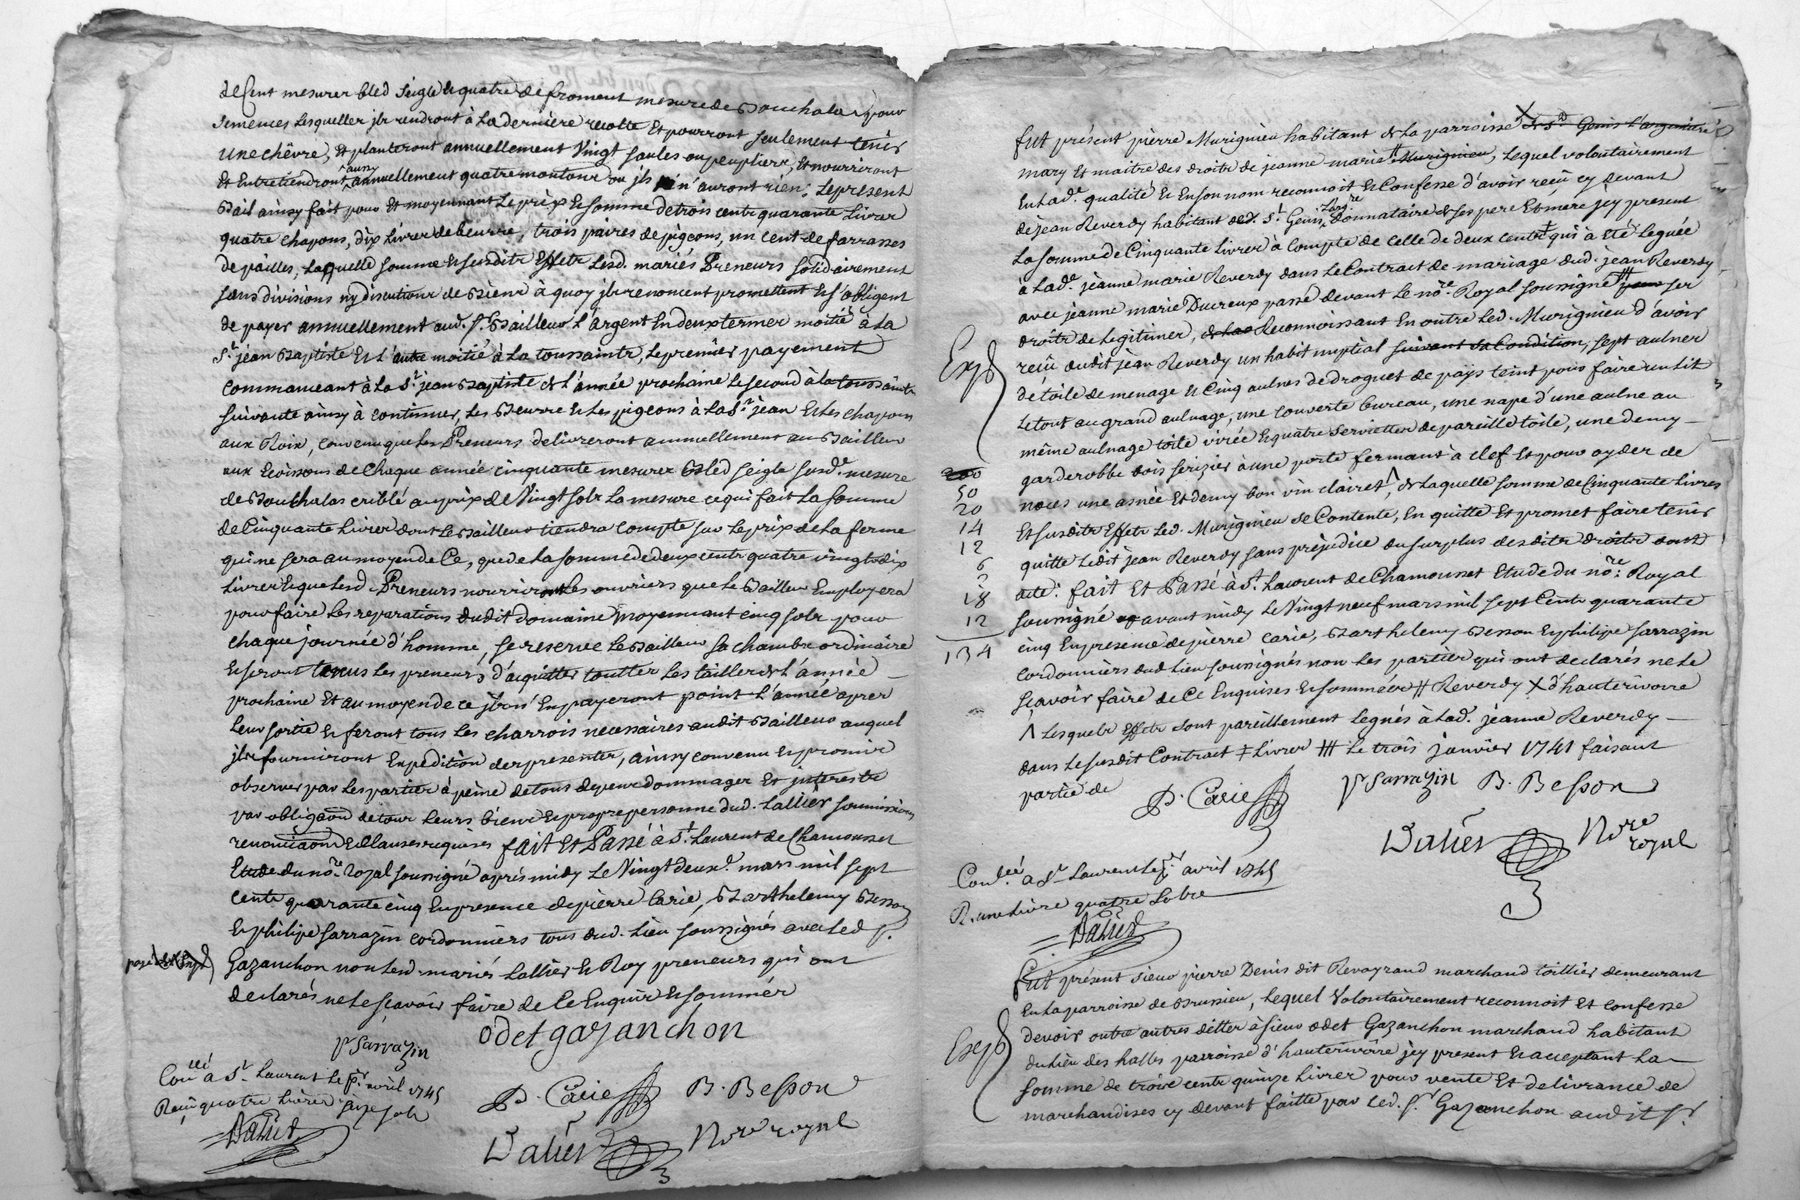 de Cent mesures bled seigle et quatre de froment mesure de Bouchalas pour
semences lesquelles jls rendront à La derniere recolte Et pourront seulement tenir
une chêvre, Et planteront annuellement Vingt saules ou peupliers, Et nourriront
Et Entretiendront aussy annuellement quatre moutons ou jls n'auront rien; Le present
Bail ainsy fait pour Et moyennant Le prix Et somme de trois cents quarante Livres
quatre chapons, dix Livres de beurre, trois paires de pigeons, un cent de farrasses
de pailles, Laquelle somme Et susdits Effets Lesd. mariés Preneurs solidairement
sans divisions ny discutions de Biens à quoy jls renoncent promettent Et s'obligent
de payer annuellement aud. Sr. Bailleur L'argent En deux termes moitié à La
St. jean Baptiste Et L'autre moitié à La toussaints, Le premier payement
commanceant à La St. jean Baptiste de L'année prochaine Le second à La toussaints
suivante ainsy à continuer, Les Beurre Et Les pigeons à La St. jean Et Les chapons
aux Roix, convenu que Les Preneurs delivreront annuellement au Bailleur
aux Ecossons de chaque année cinquante mesures bled seigle susd.e mesure
de Bouchalas criblé au prix de Vingt sols La mesure ce qui fait La somme
de Cinquante Livres dont Le Bailleur tiendra compte sur Le prix de La ferme
qui ne sera au moyen de Ce, que de La somme de deux cents quatre vingts dix
Livres Et que Lesd. Preneurs nourriront Les ouvriers que Le Bailleur Employera
pour faire Les reparations dudit domaine moyennant cinq sols pour
chaque journée d'homme, se reserve Le Bailleur sa chambre ordinaire
Et seront tenus Les preneurs d'acquitter touttes Les tailles de L'année
prochaine Et au moyen de ce jls n'En payeront point L'année apres
Leur sortie Et feront tous Les charrois necessaires audit Bailleur auquel
jls fourniront Expedition des presentes, ainsy convenu Et promis
observer par Les parties à peine de tous depens dommages Et interests
par obligaôn de tous Leurs biens Et propre personne dud. Lallier soumissions
renonciaôns Et Clauses requises fait Et Passé à St. Laurent de Chamousset
Etude du no.re Royal soussigné après midy Le Vingt deux.e mars mil sept
cents quarante cinq En presence de pierre Carie, Barthelemy Besson
Et philipe Sarrazin cordonniers tous dud. Lieu soussignés avec Led. Sr.
Gazanchon non Lesd. mariés Lallier Et Roy preneurs qui ont
declarés ne Le scavoir faire de Ce Enquis Et sommés
odet gazanchon
pr Sarrazin
P. Carie
B. Besson
Dalier
No.re royal
Con.lé à St. Laurent Le pr. avril 1745
Reçu quatre Livres seize sols
Dalier
fut présent pierre Murignieu habitant de La parroisse X
mary Et maitre des droits de jeanne marie ++ Murignieu, Lequel volontairement
En Lad.e qualité Et En son nom reconnoit Et Confesse d'avoir reçu cy devant
de jean Reverdy habitant de St. Genis L'arg.re donnataire de ses pere Et mere jcy present
La somme de Cinquante Livres à compte de celle de deux cents ‡ qui à eté Leguée
à Lad.e jeanne marie Reverdy dans Le Contract de mariage dud. jean Reverdy
avec jeanne marie Ducreux passé devant Le no.re Royal soussigné ‡‡‡ pour ses
droits de Legitimes, Reconnoissant En outre Led. Murignieu d'avoir
reçu dudit jean Reverdy un habit nuptial suivant sa Condition, sept aulnes
de toile de menage Et Cinq aulnes de droguet de pays teint pour faire un Lit
Le tout au grand aulnage, une couverte bureau, une nape d'une aulne au
même aulnage toile virée Et quatre Serviettes de pareille toile, une demy
garderobbe bois serizier à une porte fermant à clef Et pour ayder de
noces une asnée Et demy bon vin clairet Λ, de Laquelle somme de Cinquante Livres
Et susdits Effets Led. Murignieu se Contente, En quitte Et promet faire tenir
quitte Ledit jean Reverdy sans prejudice du surplus desdits droits dont
acte: fait Et Passé à St. Laurent de Chamousset Etude du no.re Royal
soussigné avant midy Le Vingt neuf mars mil sept Cents quarante
cinq En presence de pierre Carie, Barthelemy Besson Et philipe Sarrazin
cordonniers dud. Lieu soussignés non Les parties qui ont declarés ne Le
scavoir faire de Ce Enquises Et sommées ++ Reverdy X d'hauterivoire
Λ Lesquels Effets sont pareillement Legués à Lad.e jeanne Reverdy
dans Le susdit Contract ‡ Livres ‡‡‡ Le trois janvier 1741 faisant
partie de
P. Carie
pr Sarrazin
B. Besson
Dalier
No.re royal
Exp.é
200
50
20
14
12
6
2
18
12
134
Con.lé à St. Laurent Le pr. avril 1745
R. une Livre quatre sols
Dalier
Fut présent sieur pierre Denis dit Revoyrand marchand toillier demeurant
En La parroisse de Brussieu, Lequel volontairement reconnoit Et confesse
devoir outre autres dettes à sieur odet Gazanchon marchand habitant
du Lieu des halles parroisse d'hauterivoire jcy present Et acceptant La
somme de trois cents quinze Livres pour vente Et delivrance de
marchandises cy devant faitte par Led. Sr. Gazanchon audit Sr.
Exp.é